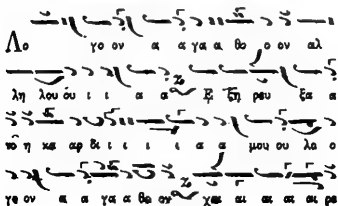 Λο γο ον α α γα α θο ο ον αλ
λη λου ου ι ι α α Ε ξη ρευ ξα α
το η κα αρ δι ι ι ι ι α α μου ου λο ο
γο ον α α γα α θο ον χαι αι αι αι αι ρε